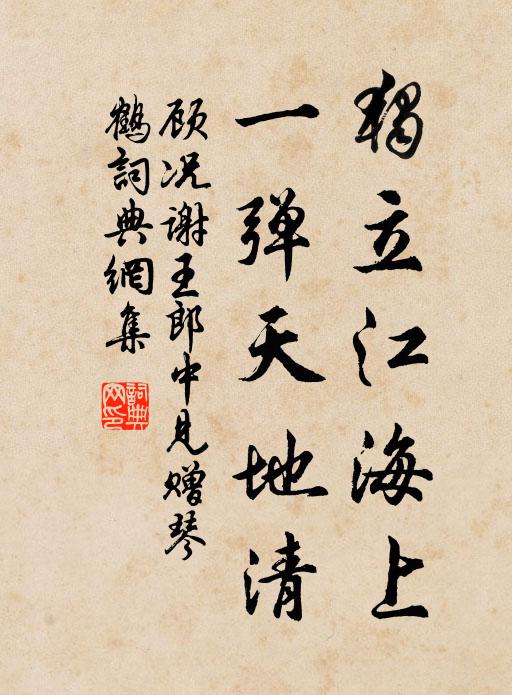 獨立江海上
一弹天地清
顾况谢王郎中見赠琴
鶴詞典網集
詞典
网印